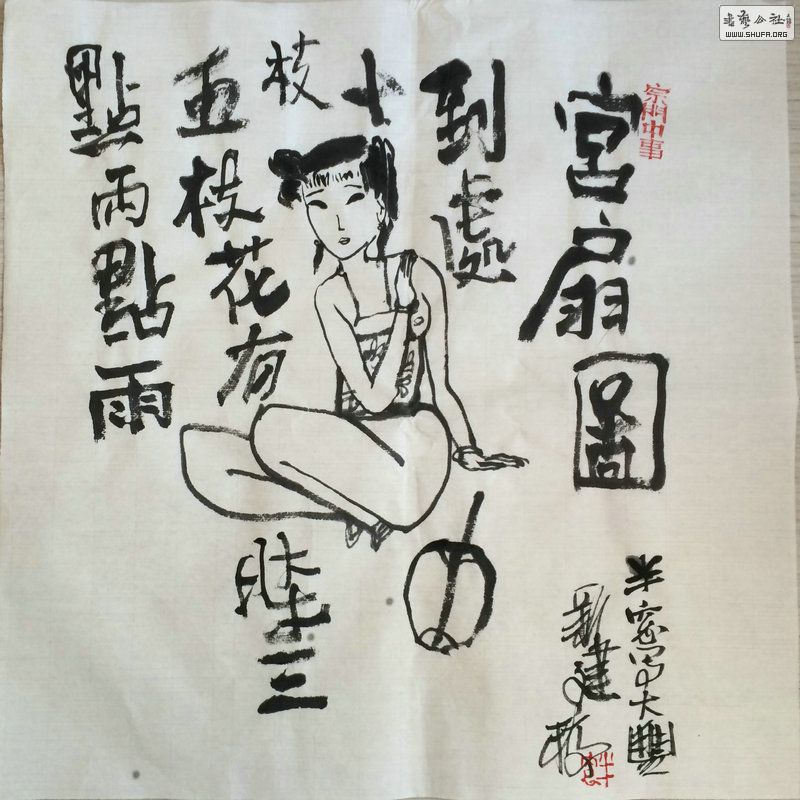 書藝公社
WWW.SHUFA.ORG
宗門中事
宮扇圖
到處
十
枝
五枝花有
時三
點兩點雨
半窓写大豐
建